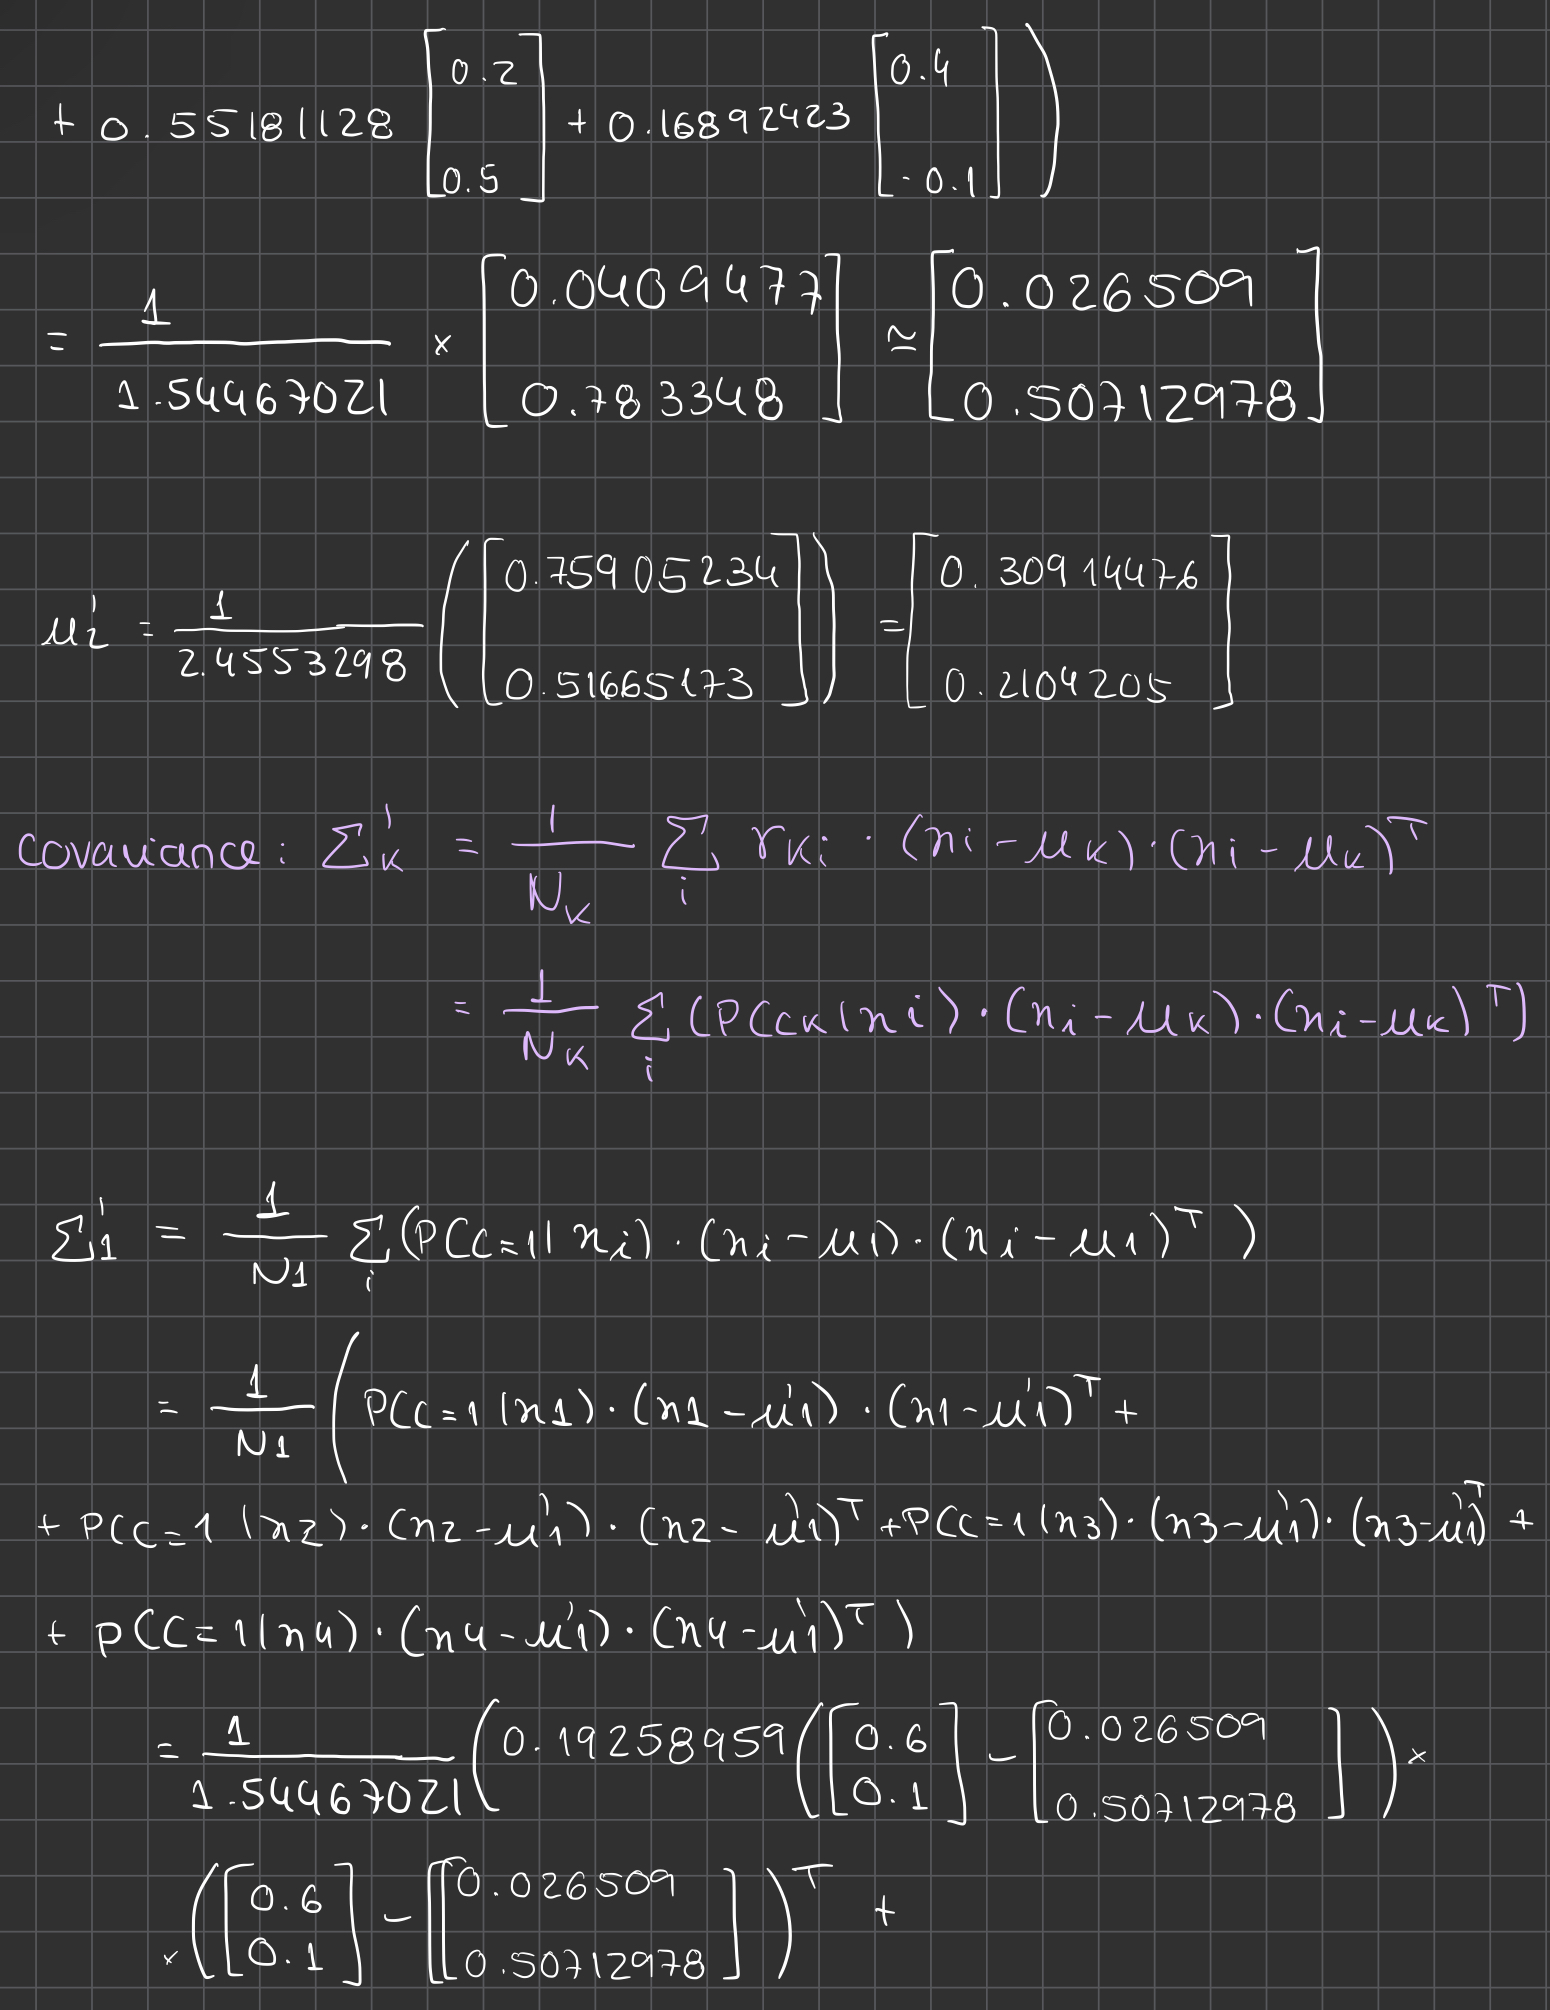 + 0.55181128 [0.2 0.5] + 0.16892423 [0.4 -0.1] )
= 1/1.54467021 × [0.0409477 0.783348] ≃ [0.026509 0.50712978]
μ2' = 1/2.4553298 ([0.75905234 0.51665173]) = [0.30914476 0.2104205]
covariance: Σk' = 1/Nk Σi rki · (xi - μk) · (xi - μk)^T
= 1/Nk Σi (P(ck|xi) · (xi - μk) · (xi - μk)^T)
Σ1' = 1/N1 Σi (P(C=1|xi) · (xi - μ1) · (xi - μ1)^T )
= 1/N1 ( P(C=1|x1) · (x1 - μ'1) · (x1 - μ'1)^T +
+ P(C=1|x2) · (x2 - μ'1) · (x2 - μ'1)^T + P(C=1|x3) · (x3 - μ'1) · (x3 - μ'1)^T +
+ P(C=1|x4) · (x4 - μ'1) · (x4 - μ'1)^T )
= 1/1.54467021 ( 0.19258959 ( [0.6 0.1] - [0.026509 0.50712978] ) ×
× ( [0.6 0.1] - [0.026509 0.50712978] )^T +